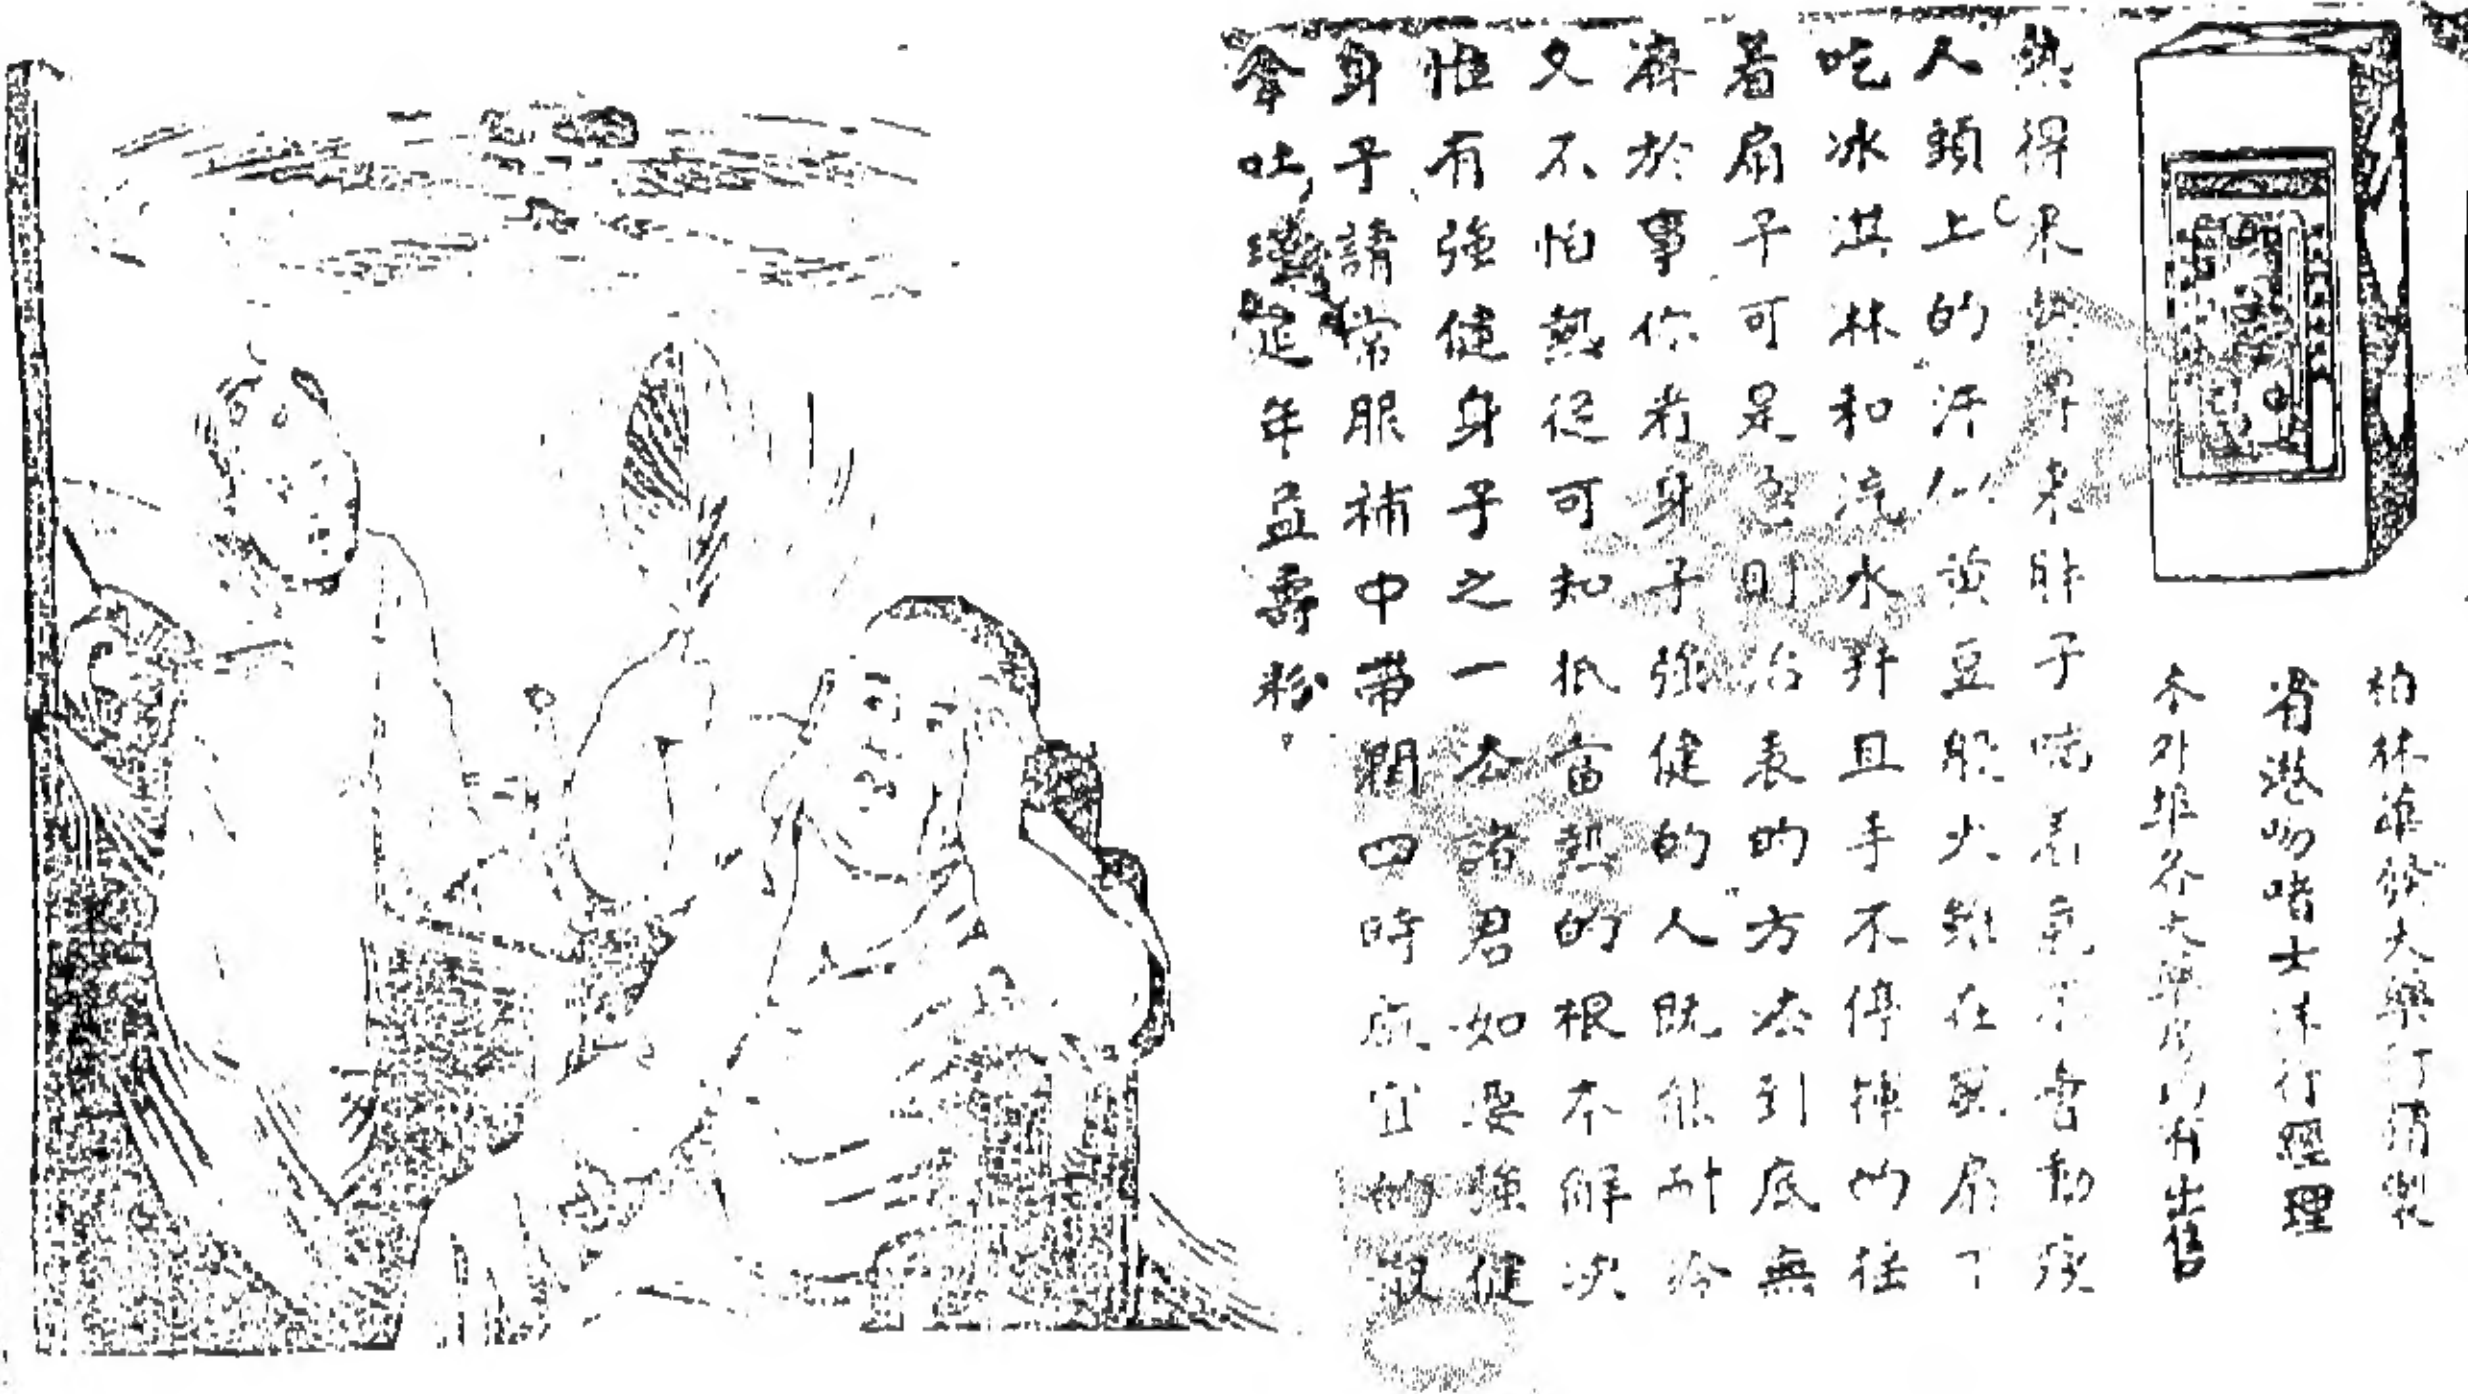 柏林華發大藥行精製
省港吻喈士洋行經理
本外埠各大藥房均有出售
熱得 來胖子喘着氣不會動瘦
人頭上的汗似黃豆般大雖在風扇下
吃冰淇林和汽水幷且手不停揮的往
着扇子可是這 治表的方法到底無
濟於事你看身子強健的人既很耐冷
又不怕熱從可知抵 熱的根本解决
惟有強健身子之一法諸君如要強健
身子請常服補中帶潤四時咸宜的散
拿吐瑾延年益壽粉。